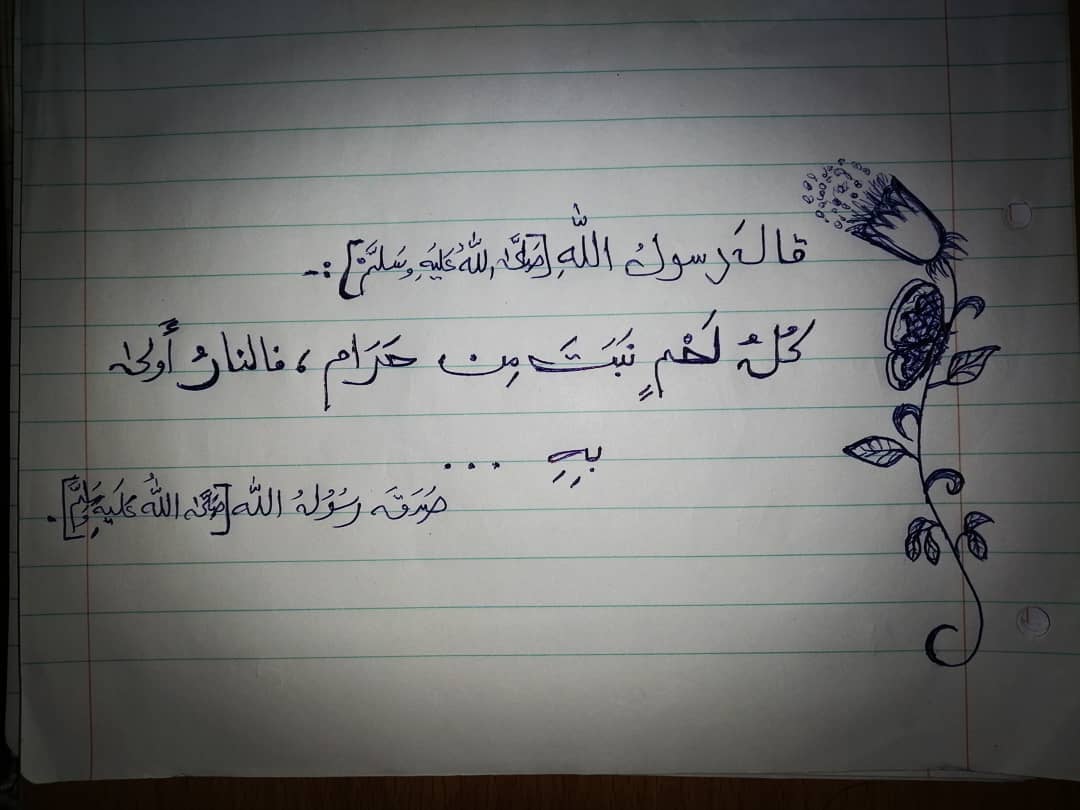 قالَ رسولُ اللّٰهِ [صَلَّىٰ اللّٰهُ عَلَيَهِ وَسَلَّمْ] :-
كُلُ لَحْمٍ نَبَتَ مِن حَرَام ، فالنارُ أَولىٰ
بِهِ ...
صَدَقَ رَسُوْلُ اللّٰه [صَلَّىٰ اللّٰهُ عَلَيهِ وَسَلَّمَ].